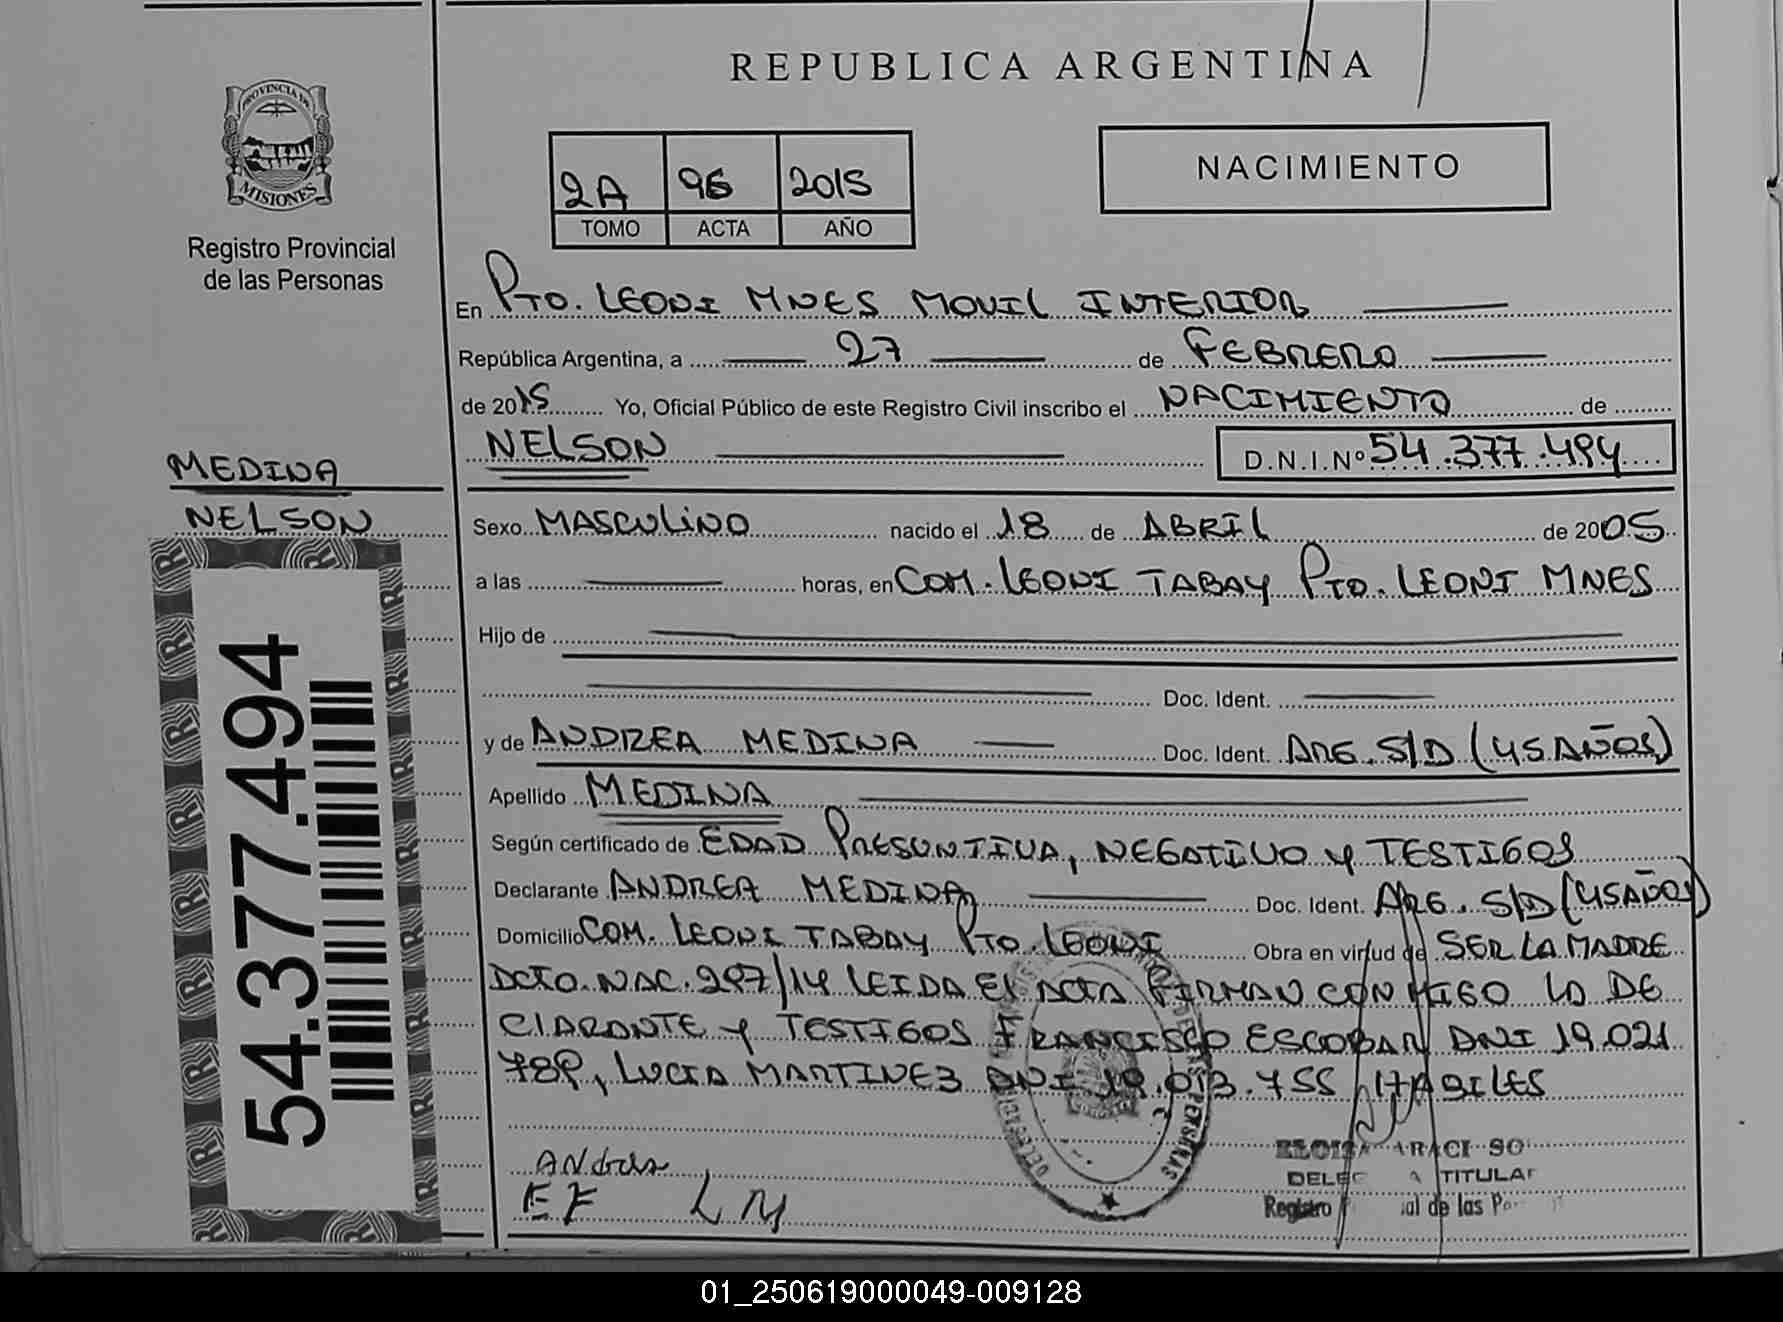 REPUBLICA ARGENTINA
PROVINCIA DE
MISIONES
Registro Provincial
de las Personas
2A 96 2015
TOMO ACTA AÑO
NACIMIENTO
En PTO. LEONI MNES MOVIL INTERIOR
República Argentina, a 27 de FEBRERO
de 2015 Yo, Oficial Público de este Registro Civil inscribo el NACIMIENTO de
NELSON D.N.I.Nº 54.377.494
MEDINA
NELSON
54.377.494
Sexo MASCULINO nacido el 18 de ABRIL de 2005
a las horas, en COM. LEONI TABAY PTO. LEONI MNES
Hijo de
Doc. Ident.
y de ANDREA MEDINA Doc. Ident. ARG. S/D (45 AÑOS)
Apellido MEDINA
Según certificado de EDAD PRESUNTIVA, NEGATIVO Y TESTIGOS
Declarante ANDREA MEDINA Doc. Ident. ARG. S/D (45 AÑOS)
Domicilio COM. LEONI TABAY PTO. LEONI Obra en virtud de SER LA MADRE
DCTO. NAC. 297/14 LEIDA EL ACTA FIRMAN CONMIGO LA DE
CLARANTE Y TESTIGOS FRANCISCO ESCOBAR DNI 19.021
789, LUCIA MARTINEZ DNI 19.013.755 HABILES
ANdrea
EF LM
DELE TITULAR
Registro de las
01_250619000049-009128